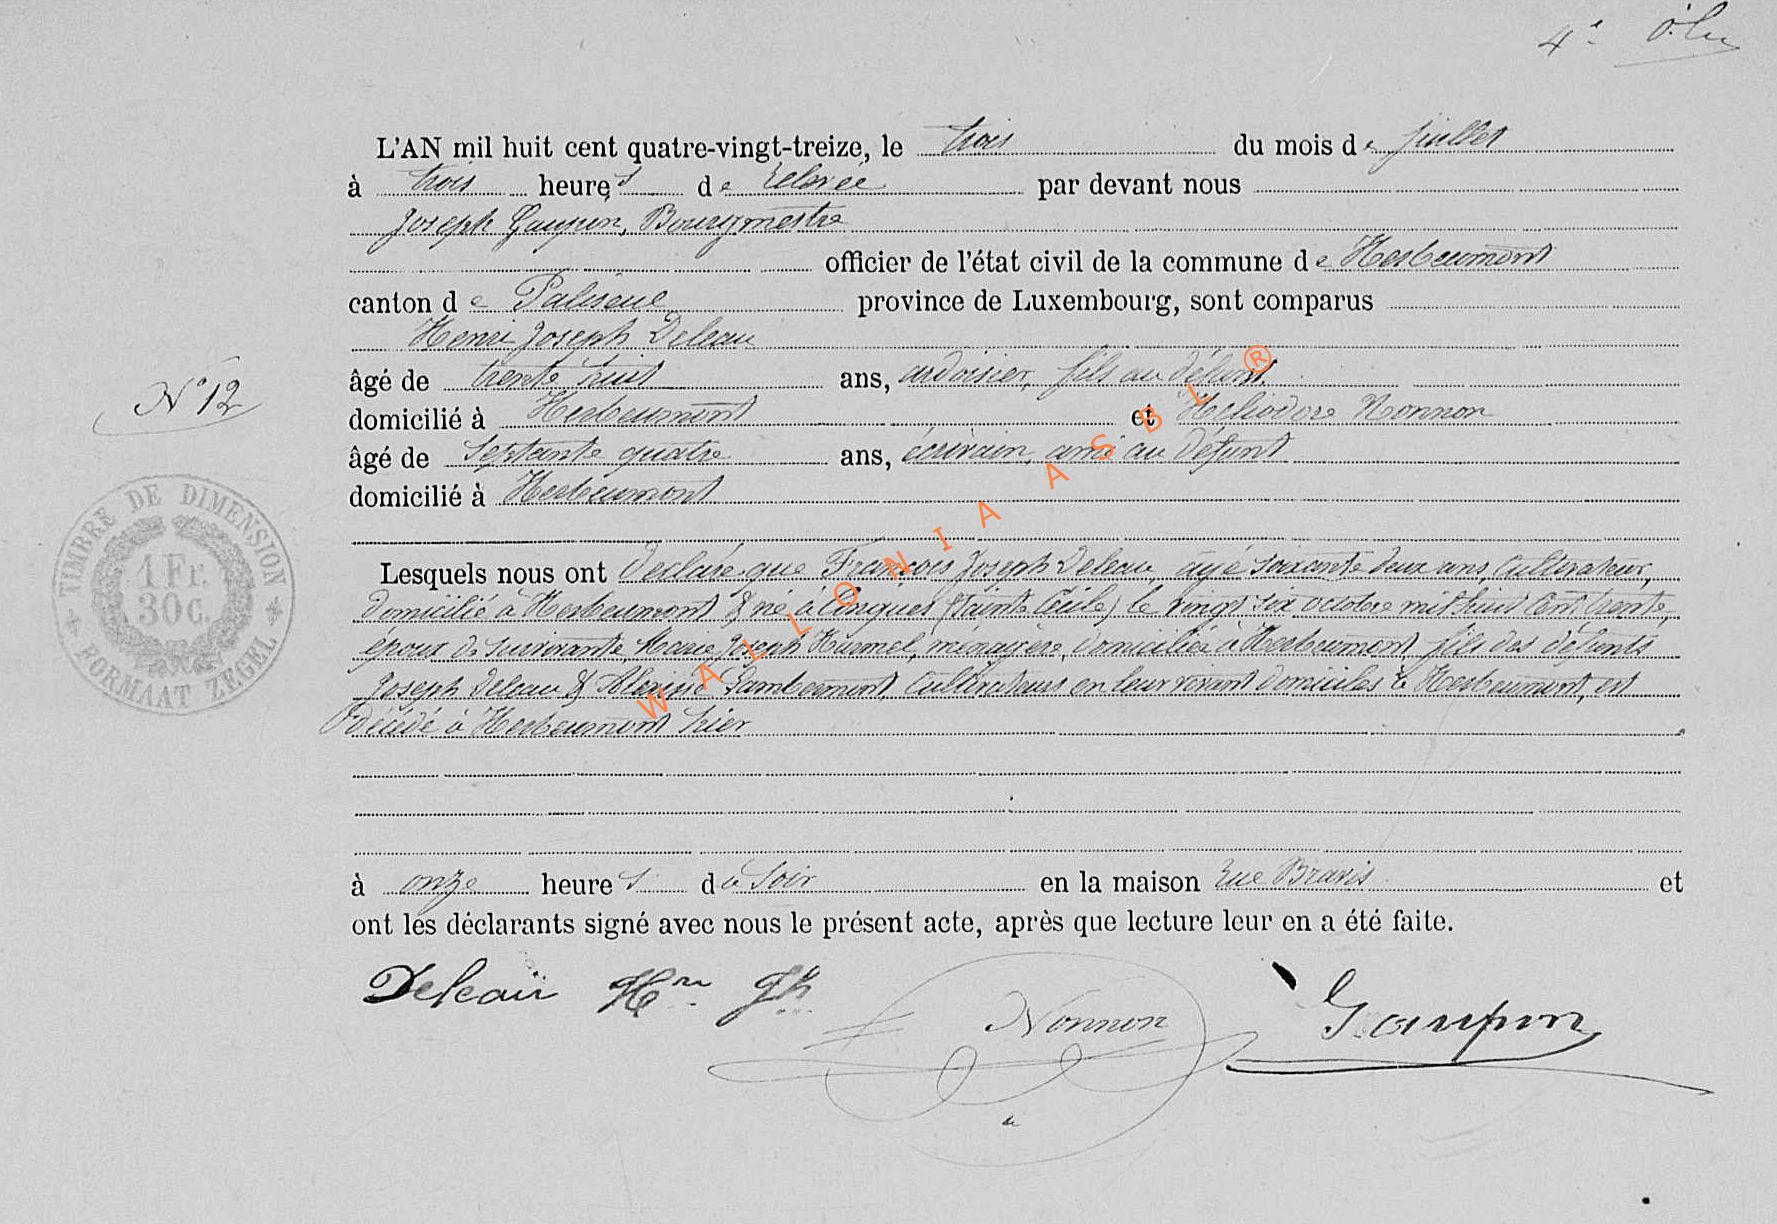 4e
L'AN mil huit cent quatre-vingt-treize, le trois du mois de juillet
à trois heures de relevée par devant nous
Joseph Gaupin, Bourgmestre
officier de l'état civil de la commune de Herbeumont
canton de Paliseul province de Luxembourg, sont comparus
Henri Joseph Deleau
âgé de trente huit ans, ardoisier, fils au défunt
domicilié à Herbeumont et Héliodore Nonnon
N° 12
âgé de Septante quatre ans, écrivain, ami au défunt
domicilié à Herbeumont
TIMBRE DE DIMENSION
1 Fr.
30 c.
FORMAAT ZEGEL
Lesquels nous ont déclaré que François Joseph Deleau, âgé soixante deux ans, Cultivateur,
domicilié à Herbeumont & né à (Sainte Cécile) le vingt six octobre mil huit cent trente,
époux de survivante Marie Joseph Hurmel, ménagère, domiciliée à Herbeumont, fils des défunts
Joseph Deleau & Lambermont, Cultivateurs en leur vivant domiciliés à Herbeumont, est
décédé à Herbeumont hier
à onze heures du soir en la maison rue Bravis et
ont les déclarants signé avec nous le présent acte, après que lecture leur en a été faite.
Deleau Hri Jh Nonnon Gaupin
WALLONIA ASBL ®